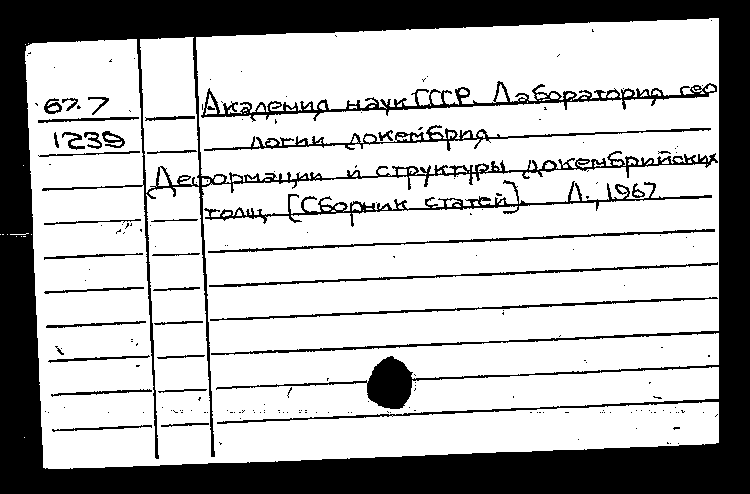 67.7 Академия наук СССР. Лаборатория гео
1239 логии докембрия.
Деформации и структуры докембрийских
толщ. [Сборник статей]. Л., 1967